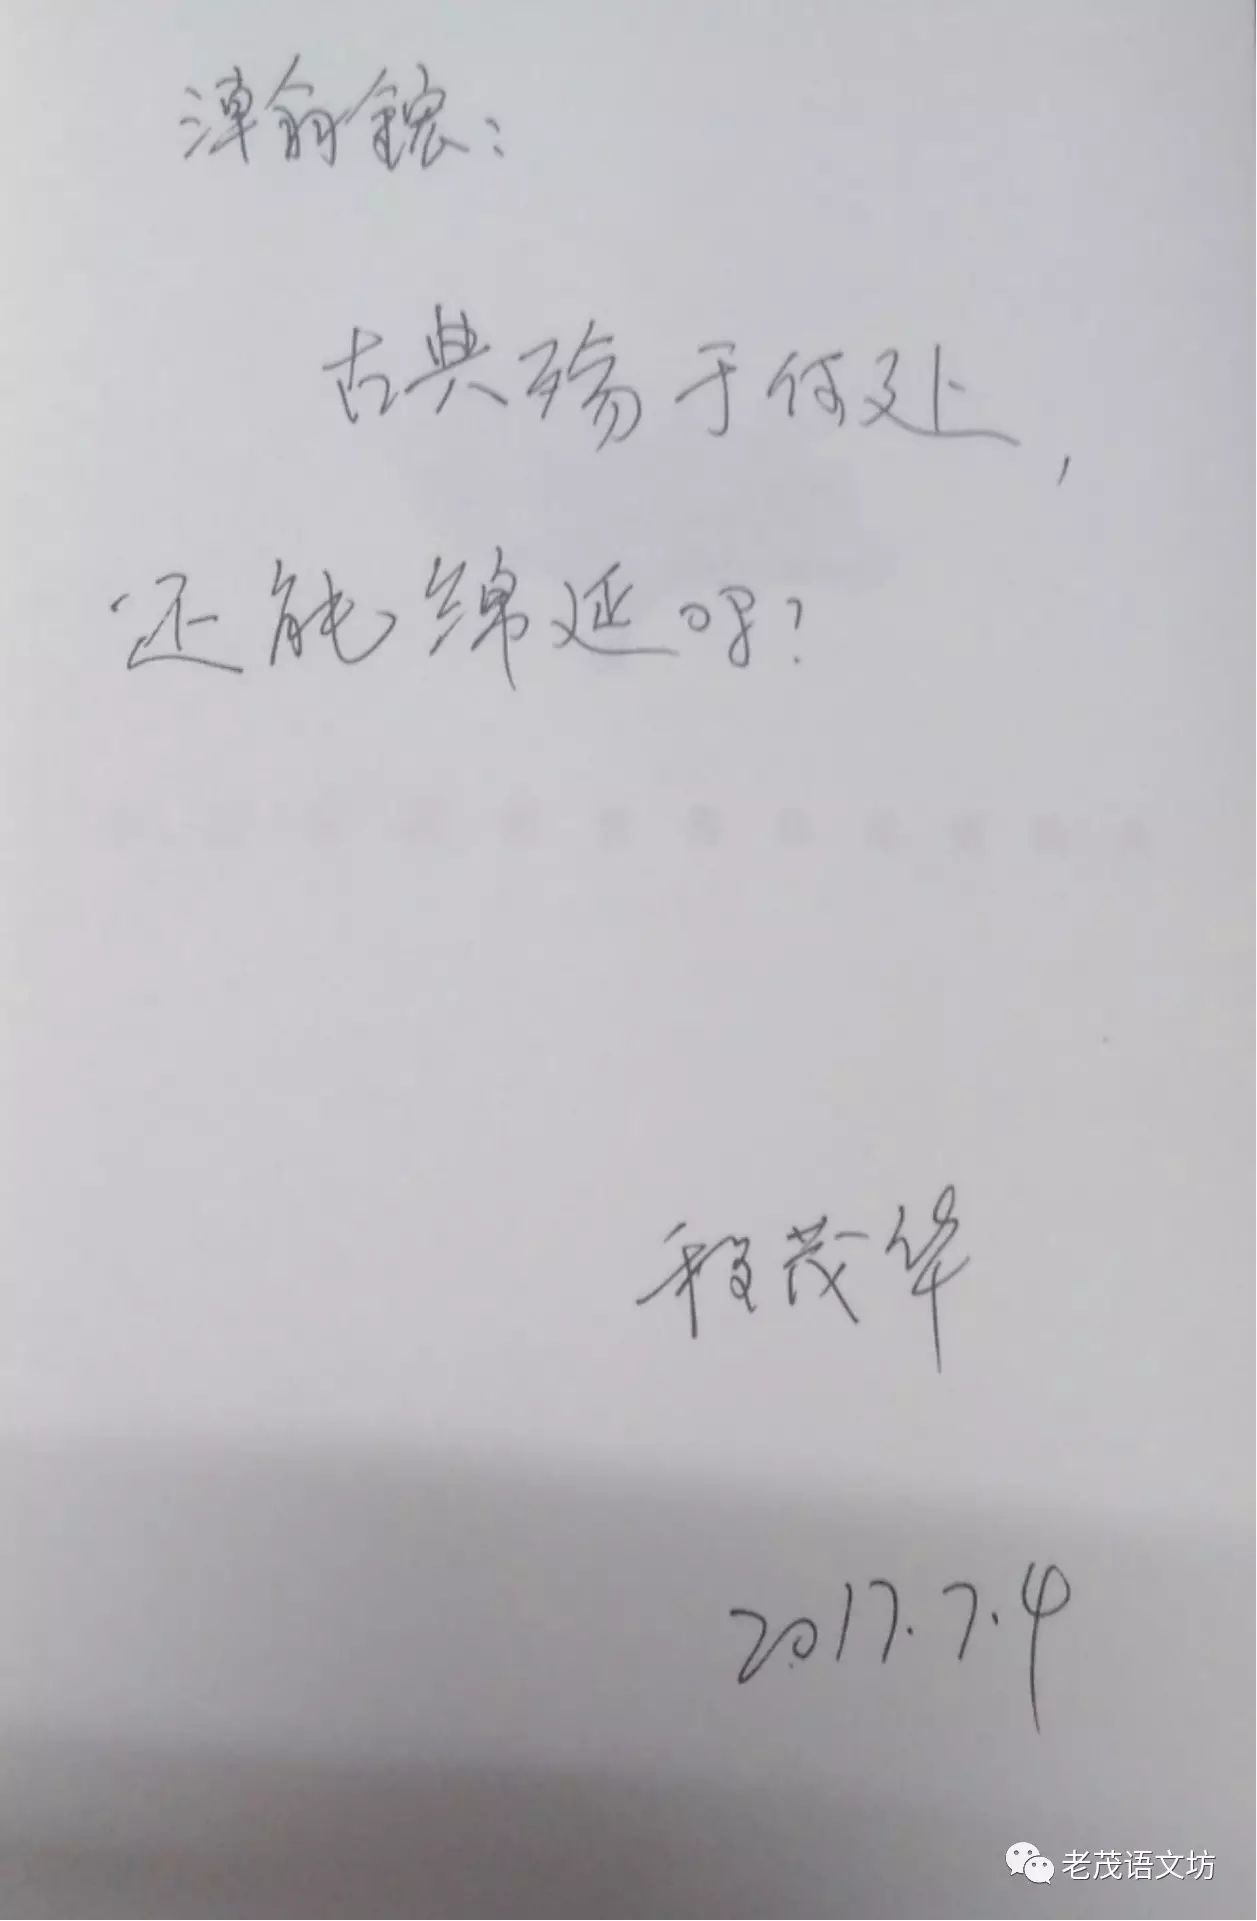 古典殇于何处，
还能绵延吗？
程茂华
2017.7.4
老茂语文坊